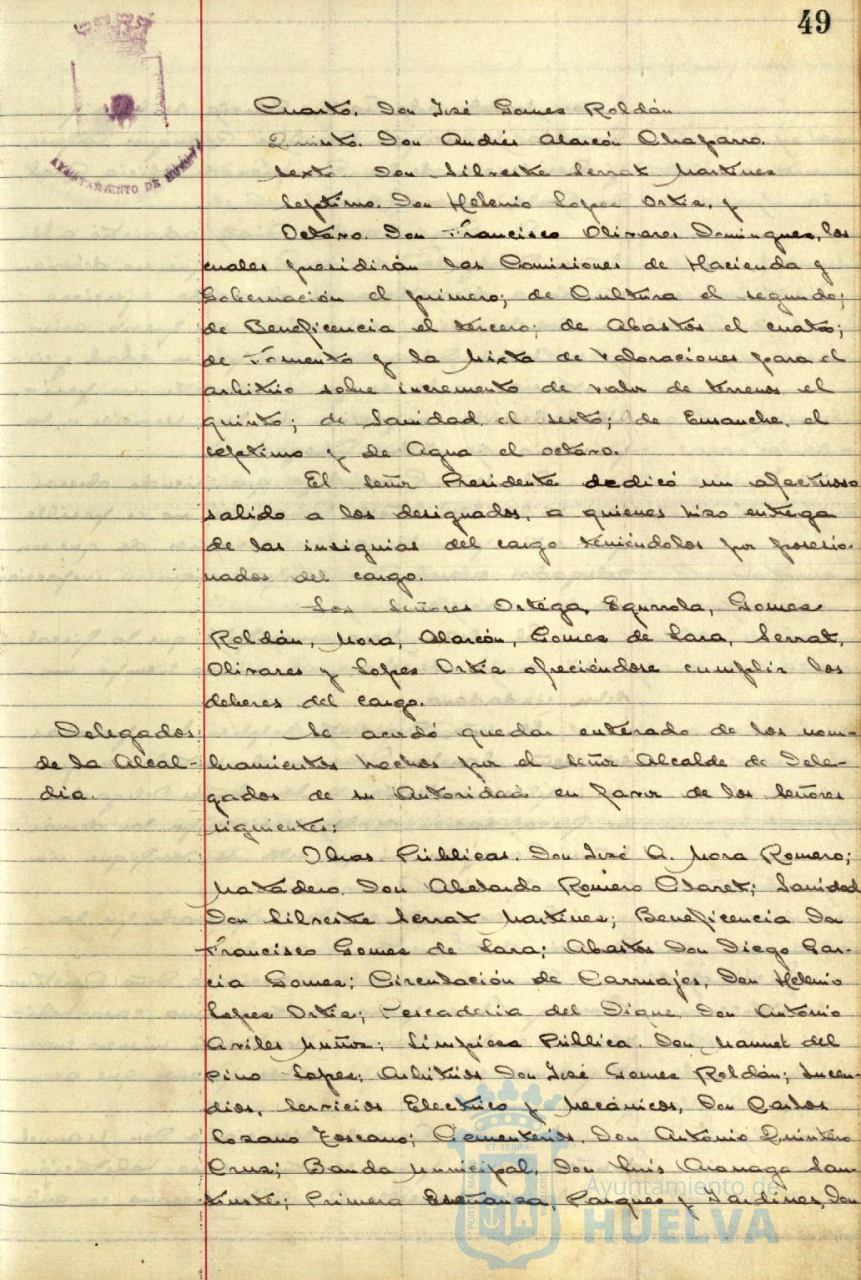 49
AYUNTAMIENTO DE HUELVA
Cuarto. Don José Gomez Roldán
Quinto. Don Andrés Alarcón Chaparro.
Sexto. Don Silvestre Serrat Martinez
Septimo. Don Helenio Lopez Ortiz, y
Octavo. Don Francisco Olivares Dominguez, los
cuales presidirán las Comisiones de Hacienda y
Gobernación el primero; de Cultura el segundo;
de Beneficencia el tercero; de Abastos el cuarto;
de Fomento y la Mixta de Valoraciones para el
arbitrio sobre incremento de valor de terrenos el
quinto; de Sanidad el sexto; de Ensanche el
septimo y de Agua el octavo.
El Señor Presidente dedicó un afectuoso
saludo a los designados, a quienes hizo entrega
de las insignias del cargo teniéndolos por posesio-
nados del cargo.
Los Señores Ortega, Egurrola, Gomez
Roldán, Mora, Alarcón, Gomez de Lara, Serrat,
Olivares y Lopez Ortiz ofreciéndose cumplir los
deberes del cargo.
Delegados
de la Alcal-
dia.
Se acordó quedar enterado de los nom-
bramientos hechos por el Señor Alcalde de Dele-
gados de su Autoridad en favor de los Señores
siguientes:
Obras Públicas. Don José A. Mora Romero;
Matadero. Don Abelardo Romero Claret; Sanidad
Don Silvestre Serrat Martinez; Beneficencia Don
Francisco Gomez de Lara; Abastos Don Diego Gar-
cia Gomez; Circulación de Carruajes, Don Helenio
Lopez Ortiz; Pescaderia del Dique Don Antonio
Aviles Muñoz; Limpieza Pública. Don Manuel del
Pino Lopez; Arbitrios Don José Gomez Roldán; Incen-
dios, Servicios Electrico y Mecánicos, Don Carlos
Lozano Toscano; Cementerios, Don Antonio Quintero
Cruz; Banda Municipal, Don Luis
Primera Eseñanza, Parques y Jardines, Don
Ayuntamiento de
HUELVA